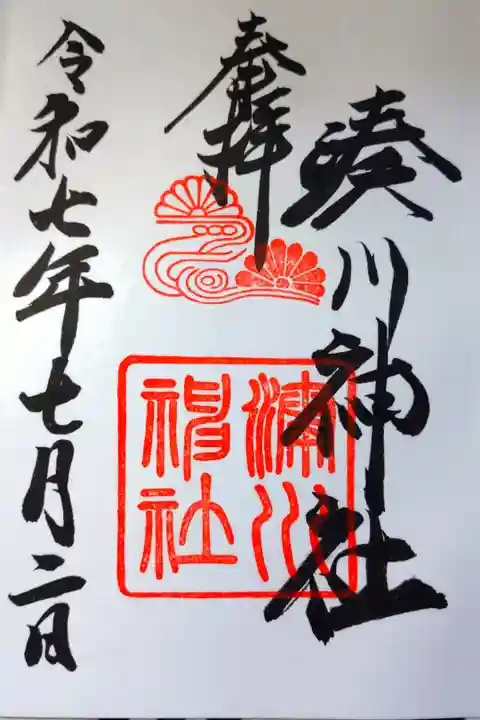 奉拝
湊川神社
湊川神社
令和七年七月二日